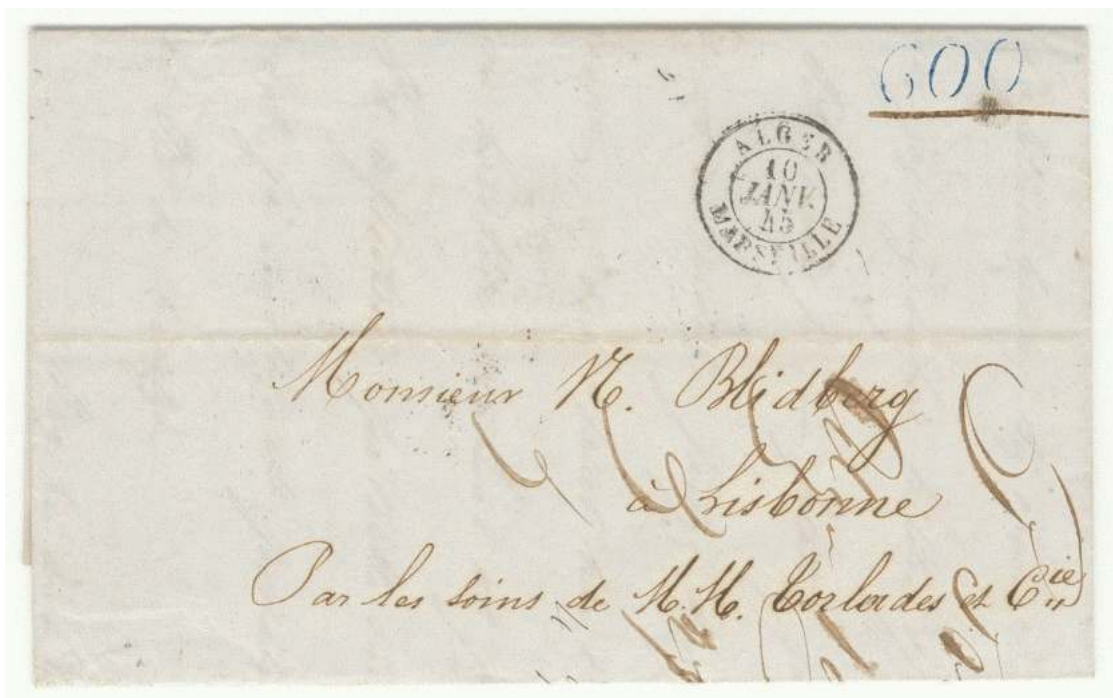 600
ALGER
10
JANV.
45
MARSEILLE
Monsieur N. Blidberg
à Lisbonne
Par les soins de M.M. Torlades et Cie